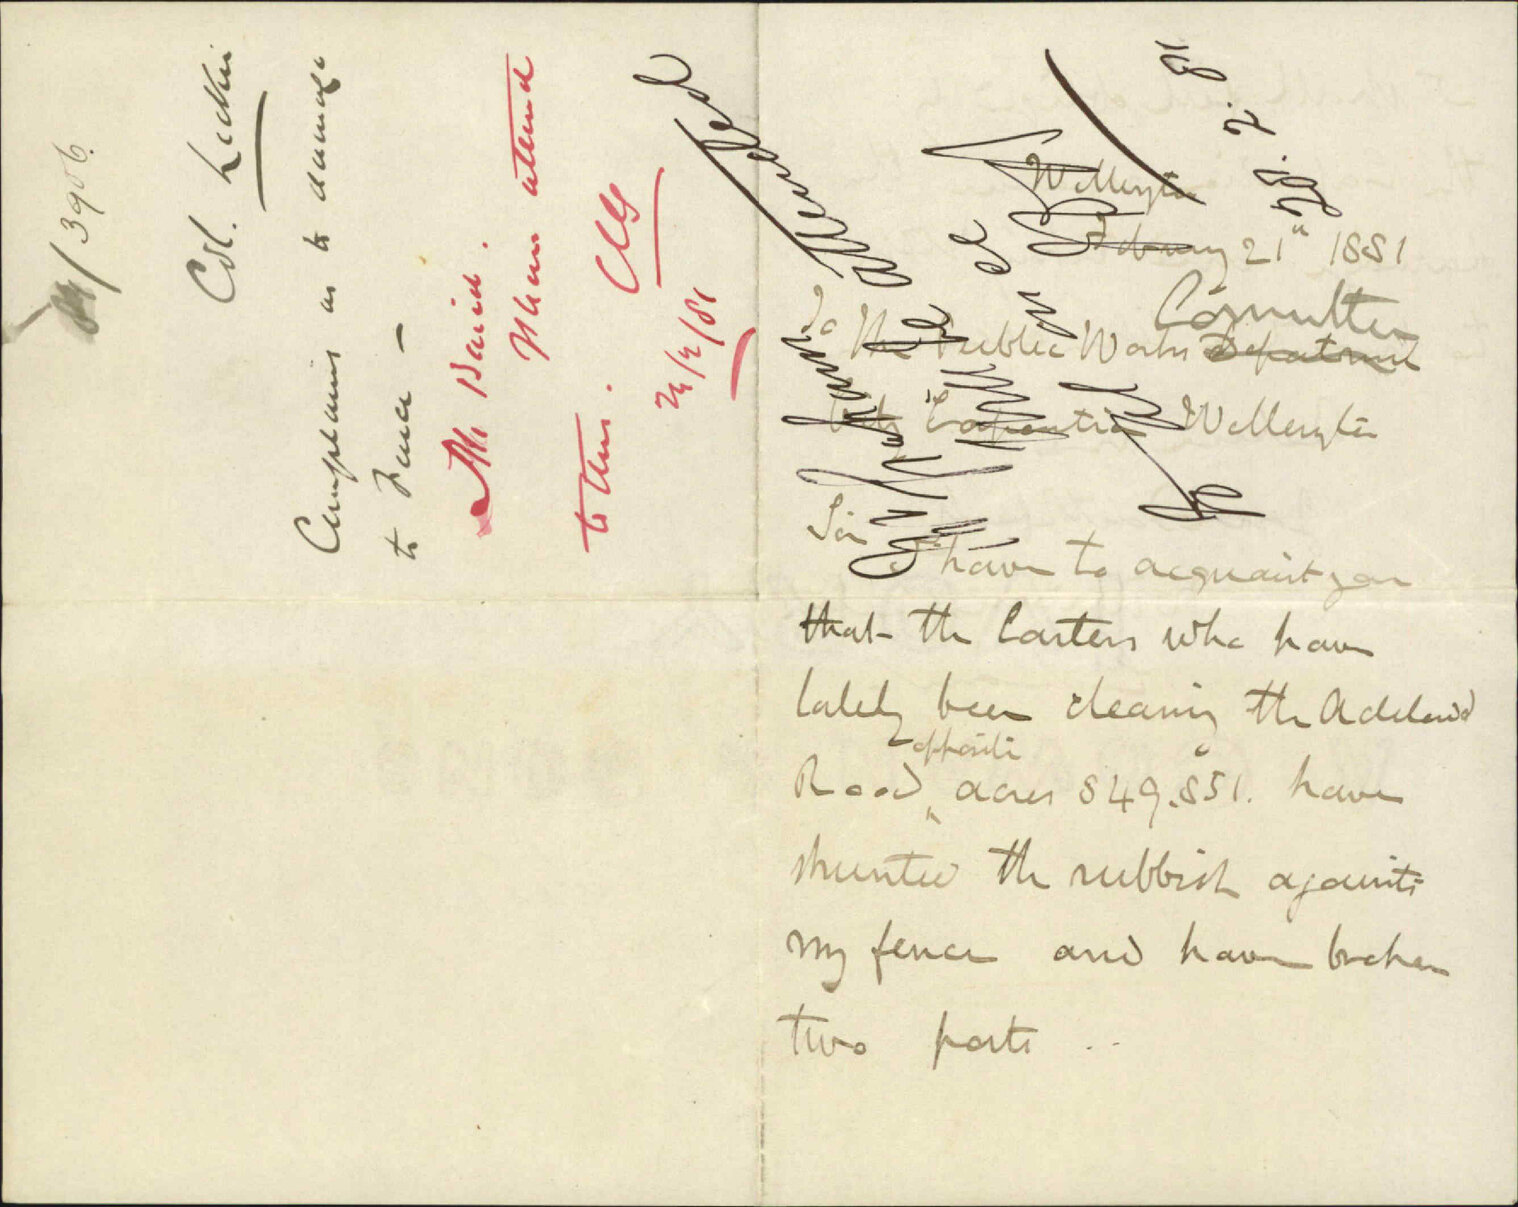 81/3906.
Col. Leckie
Complains as to damage
to Fence —
Mr Baird.
Then attend
to this.
24/2/81
attended
28. 2. 81
Wellington
February 21" 1881
Committee
To The Public Works Department
City Corporation Wellington
Sir
I have to acquaint you
that the Carters who have
lately been clearing the Adelaide
opposite
Road acres 849.851. have
shunted the rubbish against
my fence and have broken
two posts ..